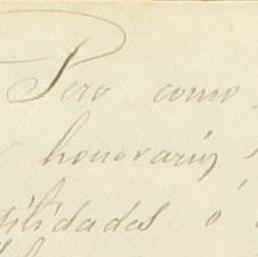 Pero como
honorarios
tilidades ó